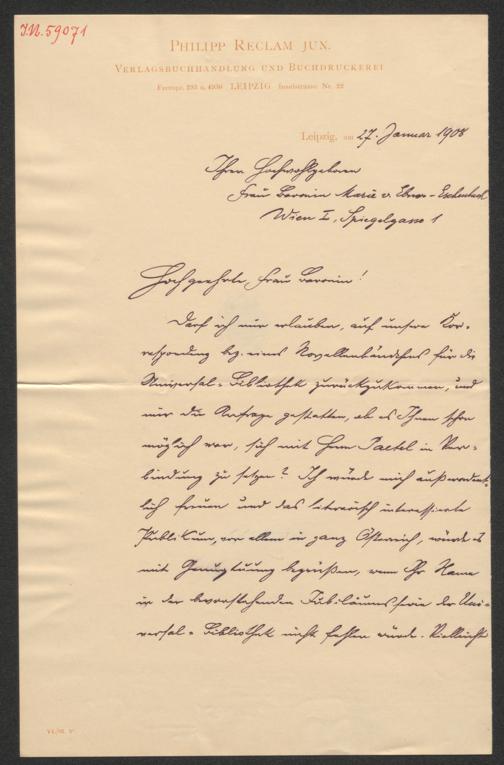 I.N. 59071
PHILIPP RECLAM JUN.
VERLAGSBUCHHANDLUNG UND BUCHDRUCKEREI
Fernspr. 293 u. 4936 LEIPZIG Inselstrasse Nr. 22
Leipzig, am 27. Januar 1908
Ihrer Hochwohlgeboren
Frau Baronin Marie v. Ebner-Eschenbach
Wien I, Spiegelgasse 1
Hochgeehrte, Frau Baronin!
Darf ich mir erlauben, auf unsere Kor-
respondenz bez. eines Novellenbändchens für die
Universal-Bibliothek zurückzukommen, und
mir die Anfrage gestatten, ob es Ihnen schon
möglich war, sich mit Herrn Paetel in Ver-
bindung zu setzen? Ich würde mich außerordent-
lich freuen und das literarisch interessierte
Publikum, vor allem in ganz Österreich, würde es
mit Genugtuung begrüßen, wenn Ihr Name
in der bevorstehenden Jubiläumsserie der Uni-
versal-Bibliothek nicht fehlen würde. Vielleicht